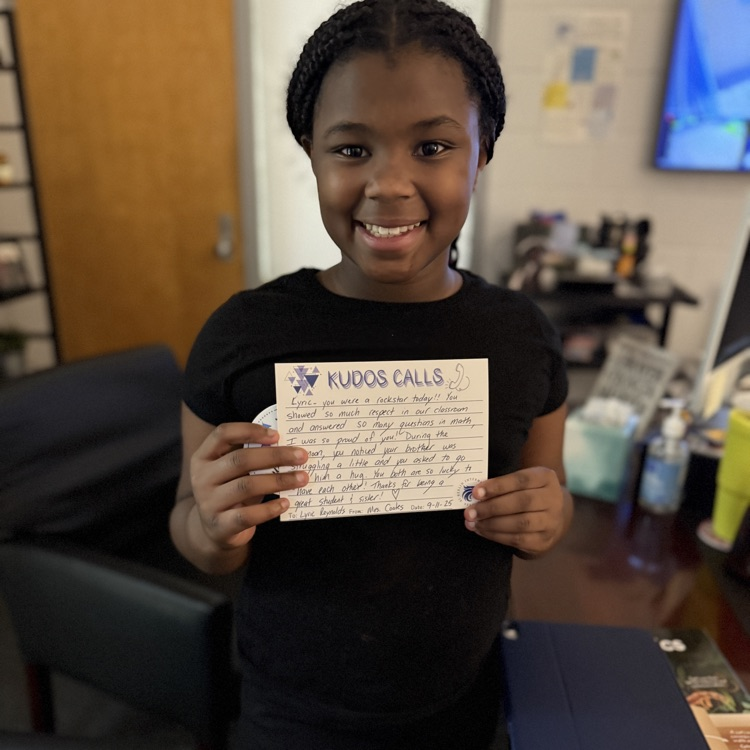 KUDOS CALLS
Lyric- you were a rockstar today!! You
showed so much respect in our classroom
and answered so many questions in math,
I was so proud of you! During the
noon, you noticed your brother was
struggling a little and you asked to go
him a hug. You both are so lucky to
have each other! Thanks for being a
great student & sister! ♡
To: Lyric Reynolds From: Mrs. Cooks Date: 9-8-25
CS